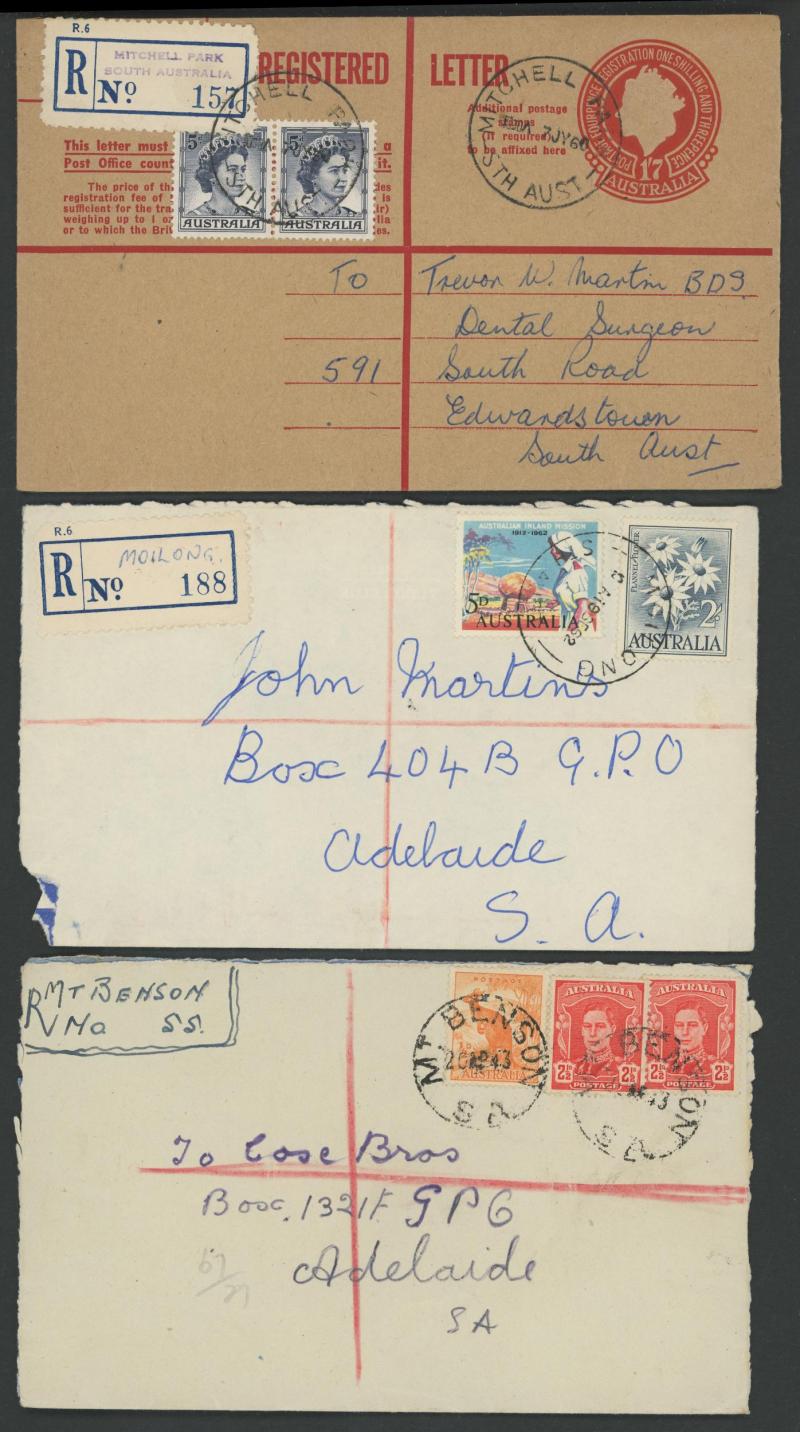 R.6
R
MITCHELL PARK
SOUTH AUSTRALIA
No 157
REGISTERED LETTER
This letter must
Post Office count
a
it.
The price of th
registration fee of
sufficient for the tra
weighing up to 1 o
or to which the Bri
des
is
ir)
lia
es.
5D
AUSTRALIA
5D
AUSTRALIA
MITCHELL PARK
STH AUST
MITCHELL PA
7JY60
STH AUST
Additional postage
stamps
if required
to be affixed here
POSTAGE FOURPENCE REGISTRATION ONE SHILLING AND THREEPENCE
17
AUSTRALIA
To Trevor W. Martin BDS
Dental Surgeon
591 South Road
Edwardstown
South Aust
R.6
R
MOILONG.
No 188
AUSTRALIAN INLAND MISSION
1912-1962
5D
AUSTRALIA
FLANNEL FLOWER
2/-
AUSTRALIA
John Martins
Box 404B G.P.O
Adelaide
S. A.
R MT BENSON
No 55.
POSTAGE
AUSTRALIA
AUSTRALIA
2½D 2½D
POSTAGE
AUSTRALIA
2½D 2½D
POSTAGE
MT BENSON
20AP43
S A
MT BENSON
43
S A
To Cose Bros
Box, 1321F GPO
Adelaide
SA